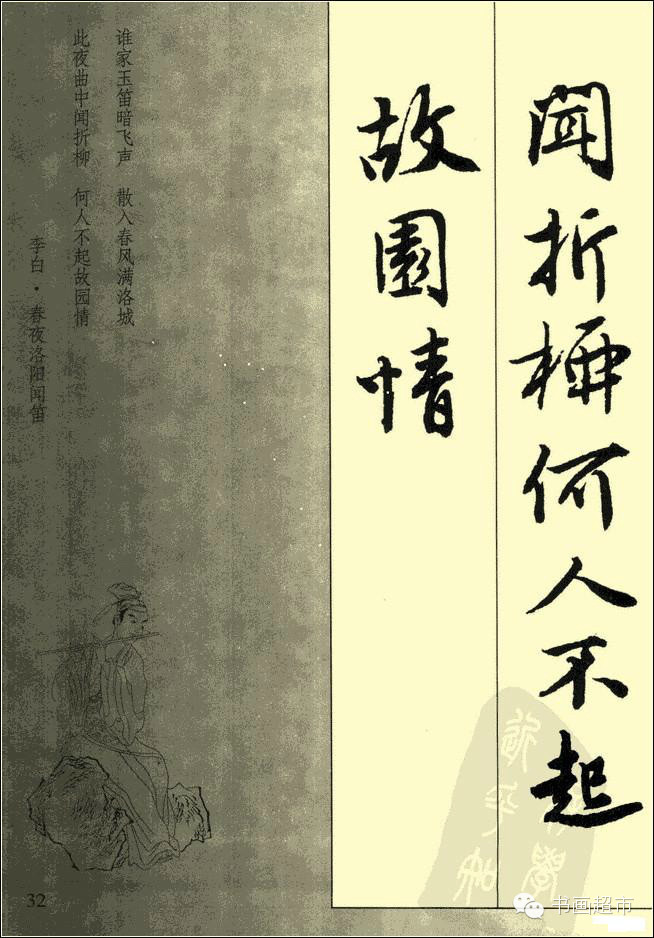 闻折柳何人不起
故園情
谁家玉笛暗飞声 散入春风满洛城
此夜曲中闻折柳 何人不起故园情
李白·春夜洛阳闻笛
32
书画超市